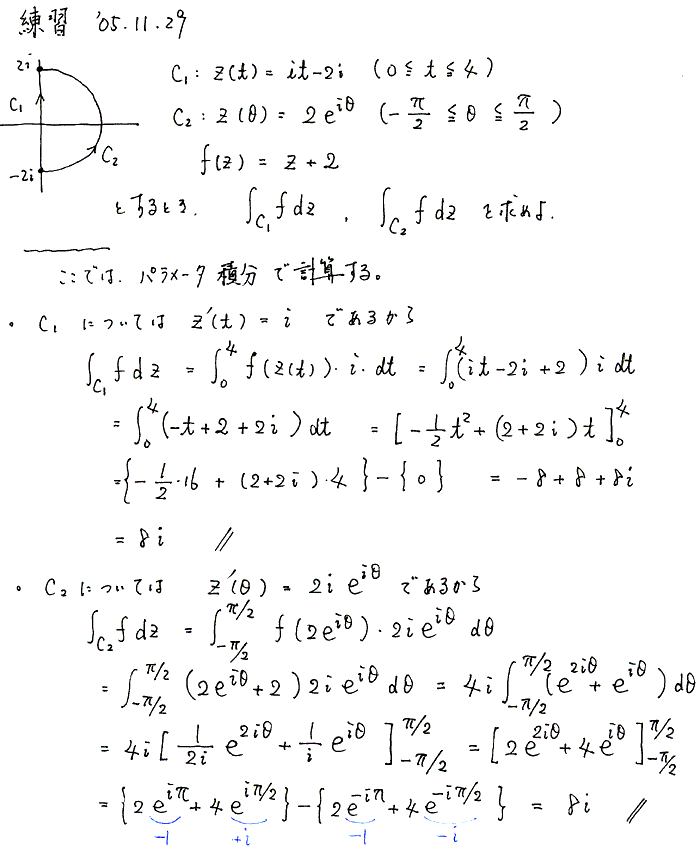 練習 '05.11.29
2i
C₁
C₂
-2i
C₁ : z(t) = it-2i (0 ≦ t ≦ 4)
C₂ : z(θ) = 2e^{iθ} (-π/2 ≦ θ ≦ π/2)
f(z) = z + 2
とするとき. ∫_{C₁} f dz , ∫_{C₂} f dz を求めよ.
ここでは. パラメータ積分で計算する。
• C₁ については z'(t) = i であるから
∫_{C₁} f dz = ∫₀⁴ f(z(t))・i・dt = ∫₀⁴ (it-2i+2) i dt
= ∫₀⁴ (-t+2+2i) dt = [-1/2 t² + (2+2i)t]₀⁴
= {-1/2・16 + (2+2i)・4} - {0} = -8+8+8i
= 8i //
• C₂ については z'(θ) = 2i e^{iθ} であるから
∫_{C₂} f dz = ∫_{-π/2}^{π/2} f(2e^{iθ})・2i e^{iθ} dθ
= ∫_{-π/2}^{π/2} (2e^{iθ}+2) 2i e^{iθ} dθ = 4i ∫_{-π/2}^{π/2} (e^{2iθ} + e^{iθ}) dθ
= 4i [1/2i e^{2iθ} + 1/i e^{iθ}]_{-π/2}^{π/2} = [2e^{2iθ} + 4e^{iθ}]_{-π/2}^{π/2}
= {2e^{iπ} + 4e^{iπ/2}} - {2e^{-iπ} + 4e^{-iπ/2}} = 8i //
-1 +i -1 -i